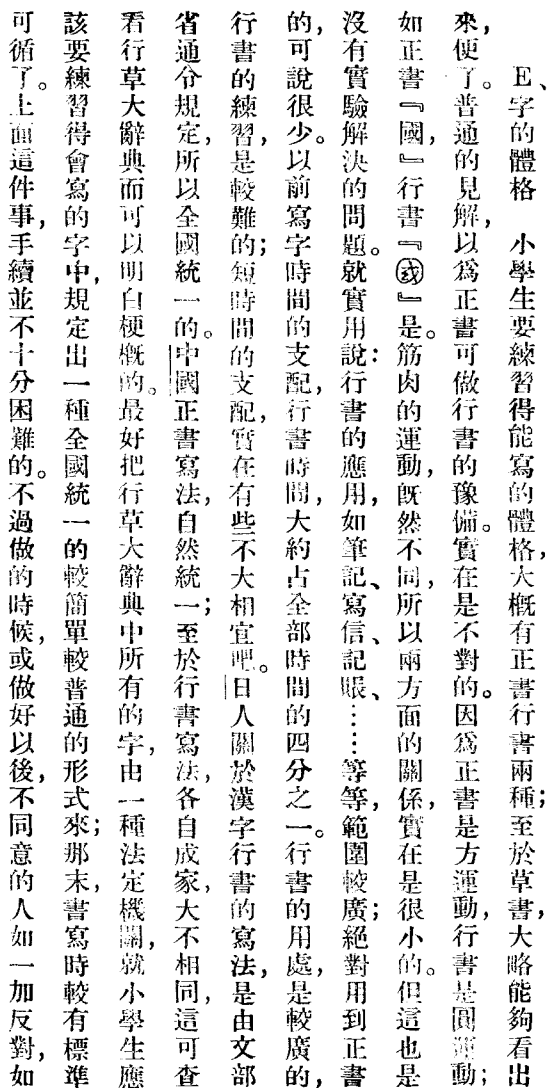 E、字的體格　小學生要練習得能寫的體格，大概有正書行書兩種；至於草書，大略能夠看出
來，便了。普通的見解，以爲正書可做行書的豫備。實在是不對的。因爲正書是方運動，行書是圓運動；
如正書『國』行書『㘣』是。筋肉的運動，旣然不同，所以兩方面的關係，實在是很小的。但這也是
沒有實驗解決的問題。就實用說：行書的應用，如筆記、寫信、記賬、……等等，範圍較廣；絕對用到正書
的，可說很少。以前寫字時間的支配，行書時間，大約占全部時間的四分之一。行書的用處，是較廣的，
行書的練習，是較難的；短時間的支配，實在有些不大相宜吧。日人關於漢字行書的寫法，是由文部
省通令規定，所以全國統一的。中國正書寫法，自然統一；至於行書寫法，各自成家，大不相同，這可查
看行草大辭典而可以明白梗概的。最好把行草大辭典中所有的字，由一種法定機關，就小學生應
該要練習得會寫的字中，規定出一種全國統一的較簡單較普通的形式來；那末，書寫時較有標準
可循了。上面這件事，手續並不十分困難的。不過做的時候，或做好以後，不同意的人如一加反對，如